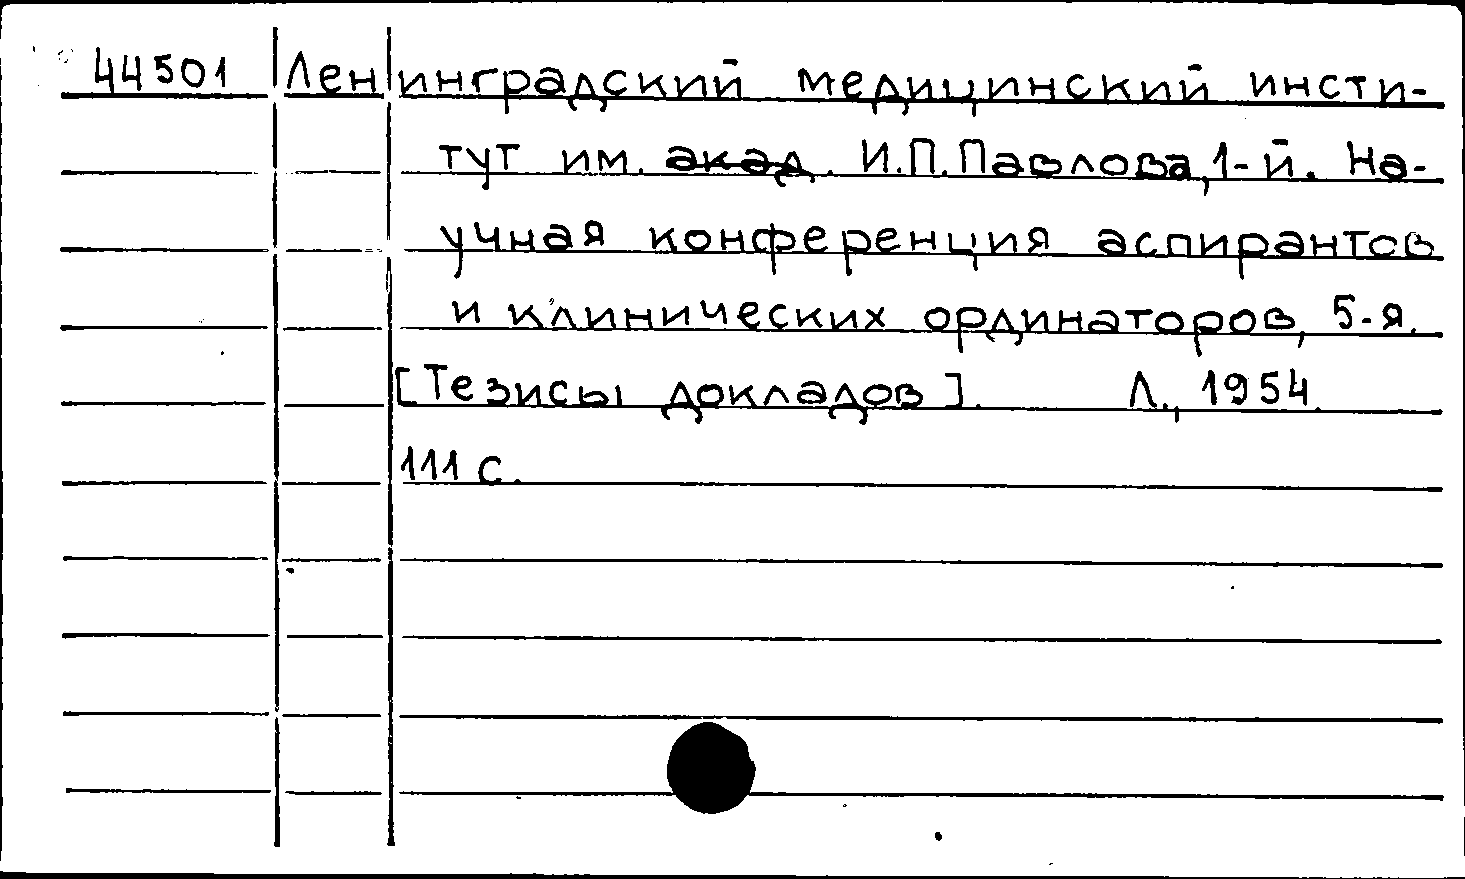 44501 Ленинградский медицинский инсти-
тут им. акад. И.П.Павлова, 1-й. На-
учная конференция аспирантов
и клинических ординаторов, 5-я.
[Тезисы докладов]. Л., 1954.
111 с.